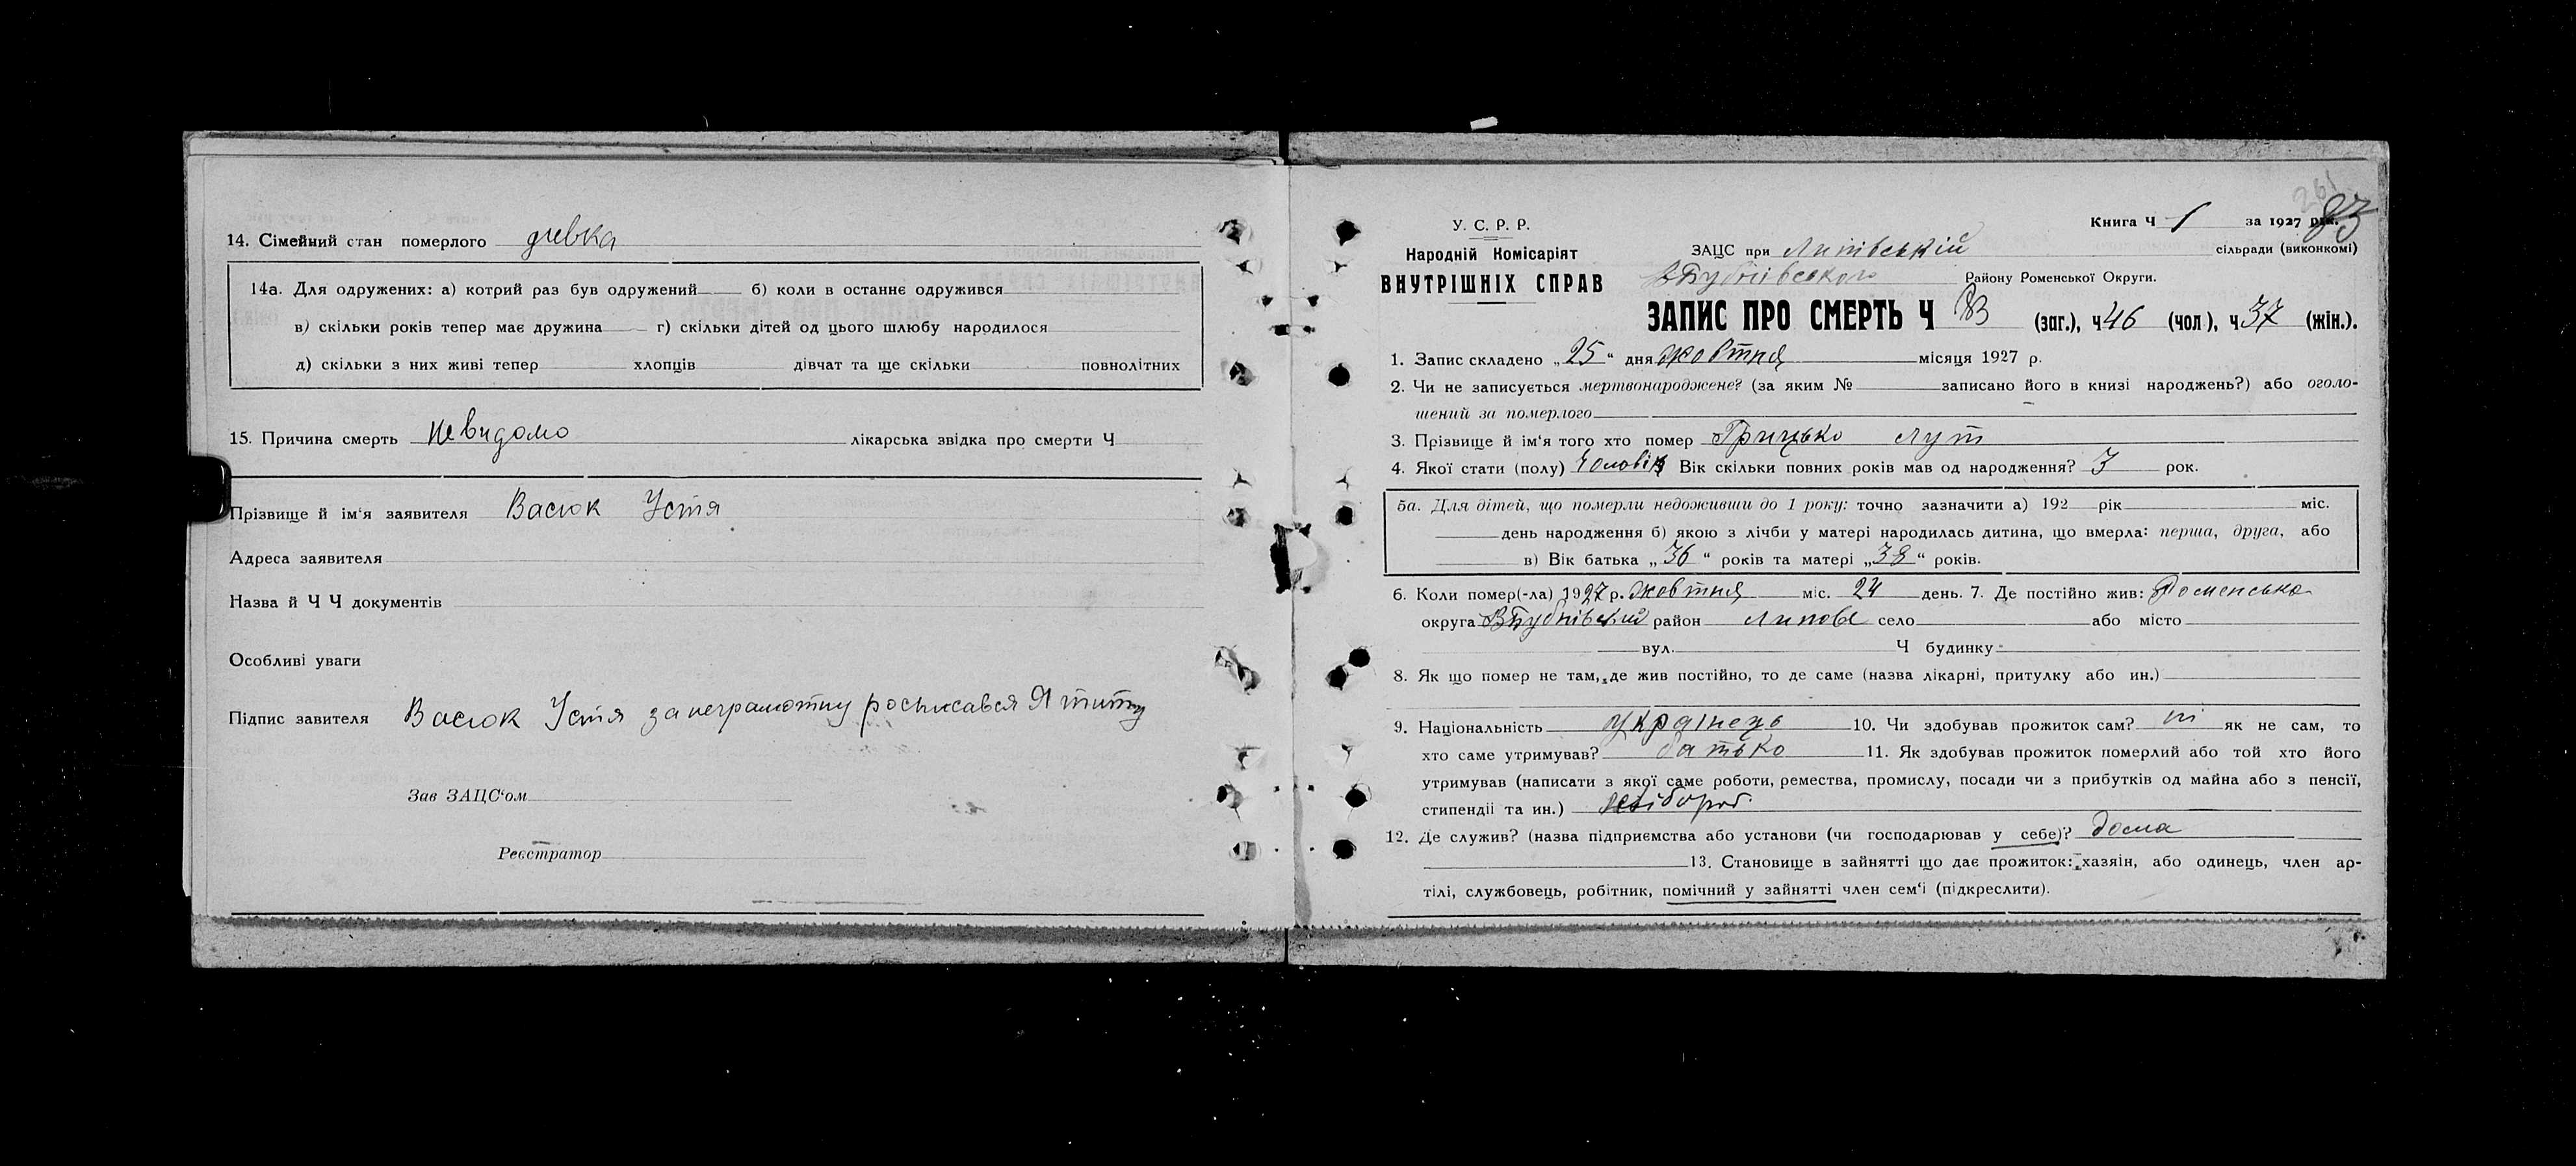 14. Сімейний стан померлого девка
14а. Для одружених: а) котрий раз був одружений б) коли в останнє одружився
в) скільки років тепер має дружина г) скільки дітей од цього шлюбу народилося
д) скільки з них живі тепер хлопців дівчат та ще скільки повнолітних
15. Причина смерть невидомо лікарська звідка про смерти Ч
Прізвище й ім'я заявителя Васюк Устя
Адреса заявителя
Назва й Ч Ч документів
Особливі уваги
Підпис завителя Васюк Устя за неграмотну росписався
Зав ЗАЦС'ом
Реєстратор
261
83
Книга Ч 1 за 1927 рік.
У. С. Р. Р.
Народній Комісаріят
ВНУТРІШНІХ СПРАВ
ЗАЦС при Липівській сільради (виконкомі)
В Бубнівського Району Роменської Округи.
ЗАПИС ПРО СМЕРТЬ Ч 83 (заг.), ч 46 (чол), ч 37 (жін.).
1. Запис складено „25“ дня жовтня місяця 1927 р.
2. Чи не записується мертвонароджене? (за яким № записано його в книзі народжень?) або оголо-
шений за померлого
3. Прізвище й ім'я того хто помер Грицько Лут
4. Якої стати (полу) Чоловік Вік скільки повних років мав од народження? 3 рок.
5а. Для дітей, що померли недоживши до 1 року: точно зазначити а) 192 рік міс.
день народження б) якою з лічби у матері народилась дитина, що вмерла: перша, друга, або
в) Вік батька „36“ років та матері „38“ років.
6. Коли помер(-ла) 1927 р. жовтня міс. 24 день. 7. Де постійно жив: Роменська
округа В Бубнівський район Липове село або місто
вул. Ч будинку
8. Як що помер не там, де жив постійно, то де саме (назва лікарні, притулку або ин.)
9. Національність українець 10. Чи здобував прожиток сам? ні як не сам, то
хто саме утримував? батько 11. Як здобував прожиток померлий або той хто його
утримував (написати з якої саме роботи, ремества, промислу, посади чи з прибутків од майна або з пенсії,
стипендії та ин.) хлібороб
12. Де служив? (назва підприємства або установи (чи господарював у себе)? дома
13. Становище в зайнятті що дає прожиток: хазяін, або одинець, член ар-
тілі, службовець, робітник, помічний у зайнятті член сем'і (підкреслити).